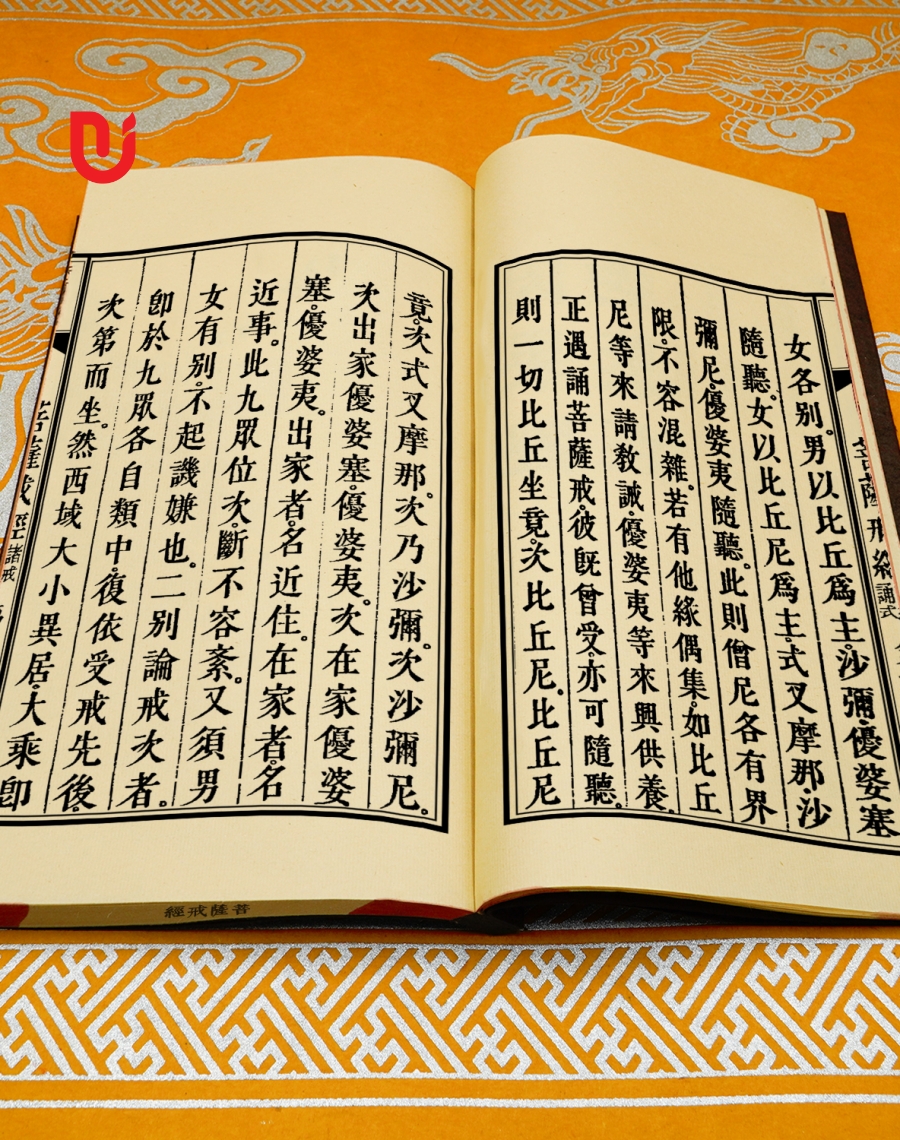 菩薩戒經 誦式
女各别。男以比丘爲主。沙彌。優婆塞
隨聽。女以比丘尼爲主。式叉摩那。沙
彌尼。優婆夷隨聽。此則僧尼各有界
限。不容混雜。若有他緣偶集。如比丘
尼等來請敎誡。優婆夷等來興供養。
正遇誦菩薩戒。彼旣曾受。亦可隨聽。
則一切比丘坐竟。次比丘尼。比丘尼
竟。次式叉摩那。次乃沙彌。次沙彌尼。
次出家優婆塞。優婆夷。次在家優婆
塞。優婆夷。出家者。名近住。在家者。名
近事。此九眾位次。斷不容紊。又須男
女有别。不起譏嫌也。二别論戒次者。
卽於九眾各自類中。復依受戒先後。
次第而坐。然西域大小異居。大乘卽
菩薩戒經 諸戒
菩薩戒經